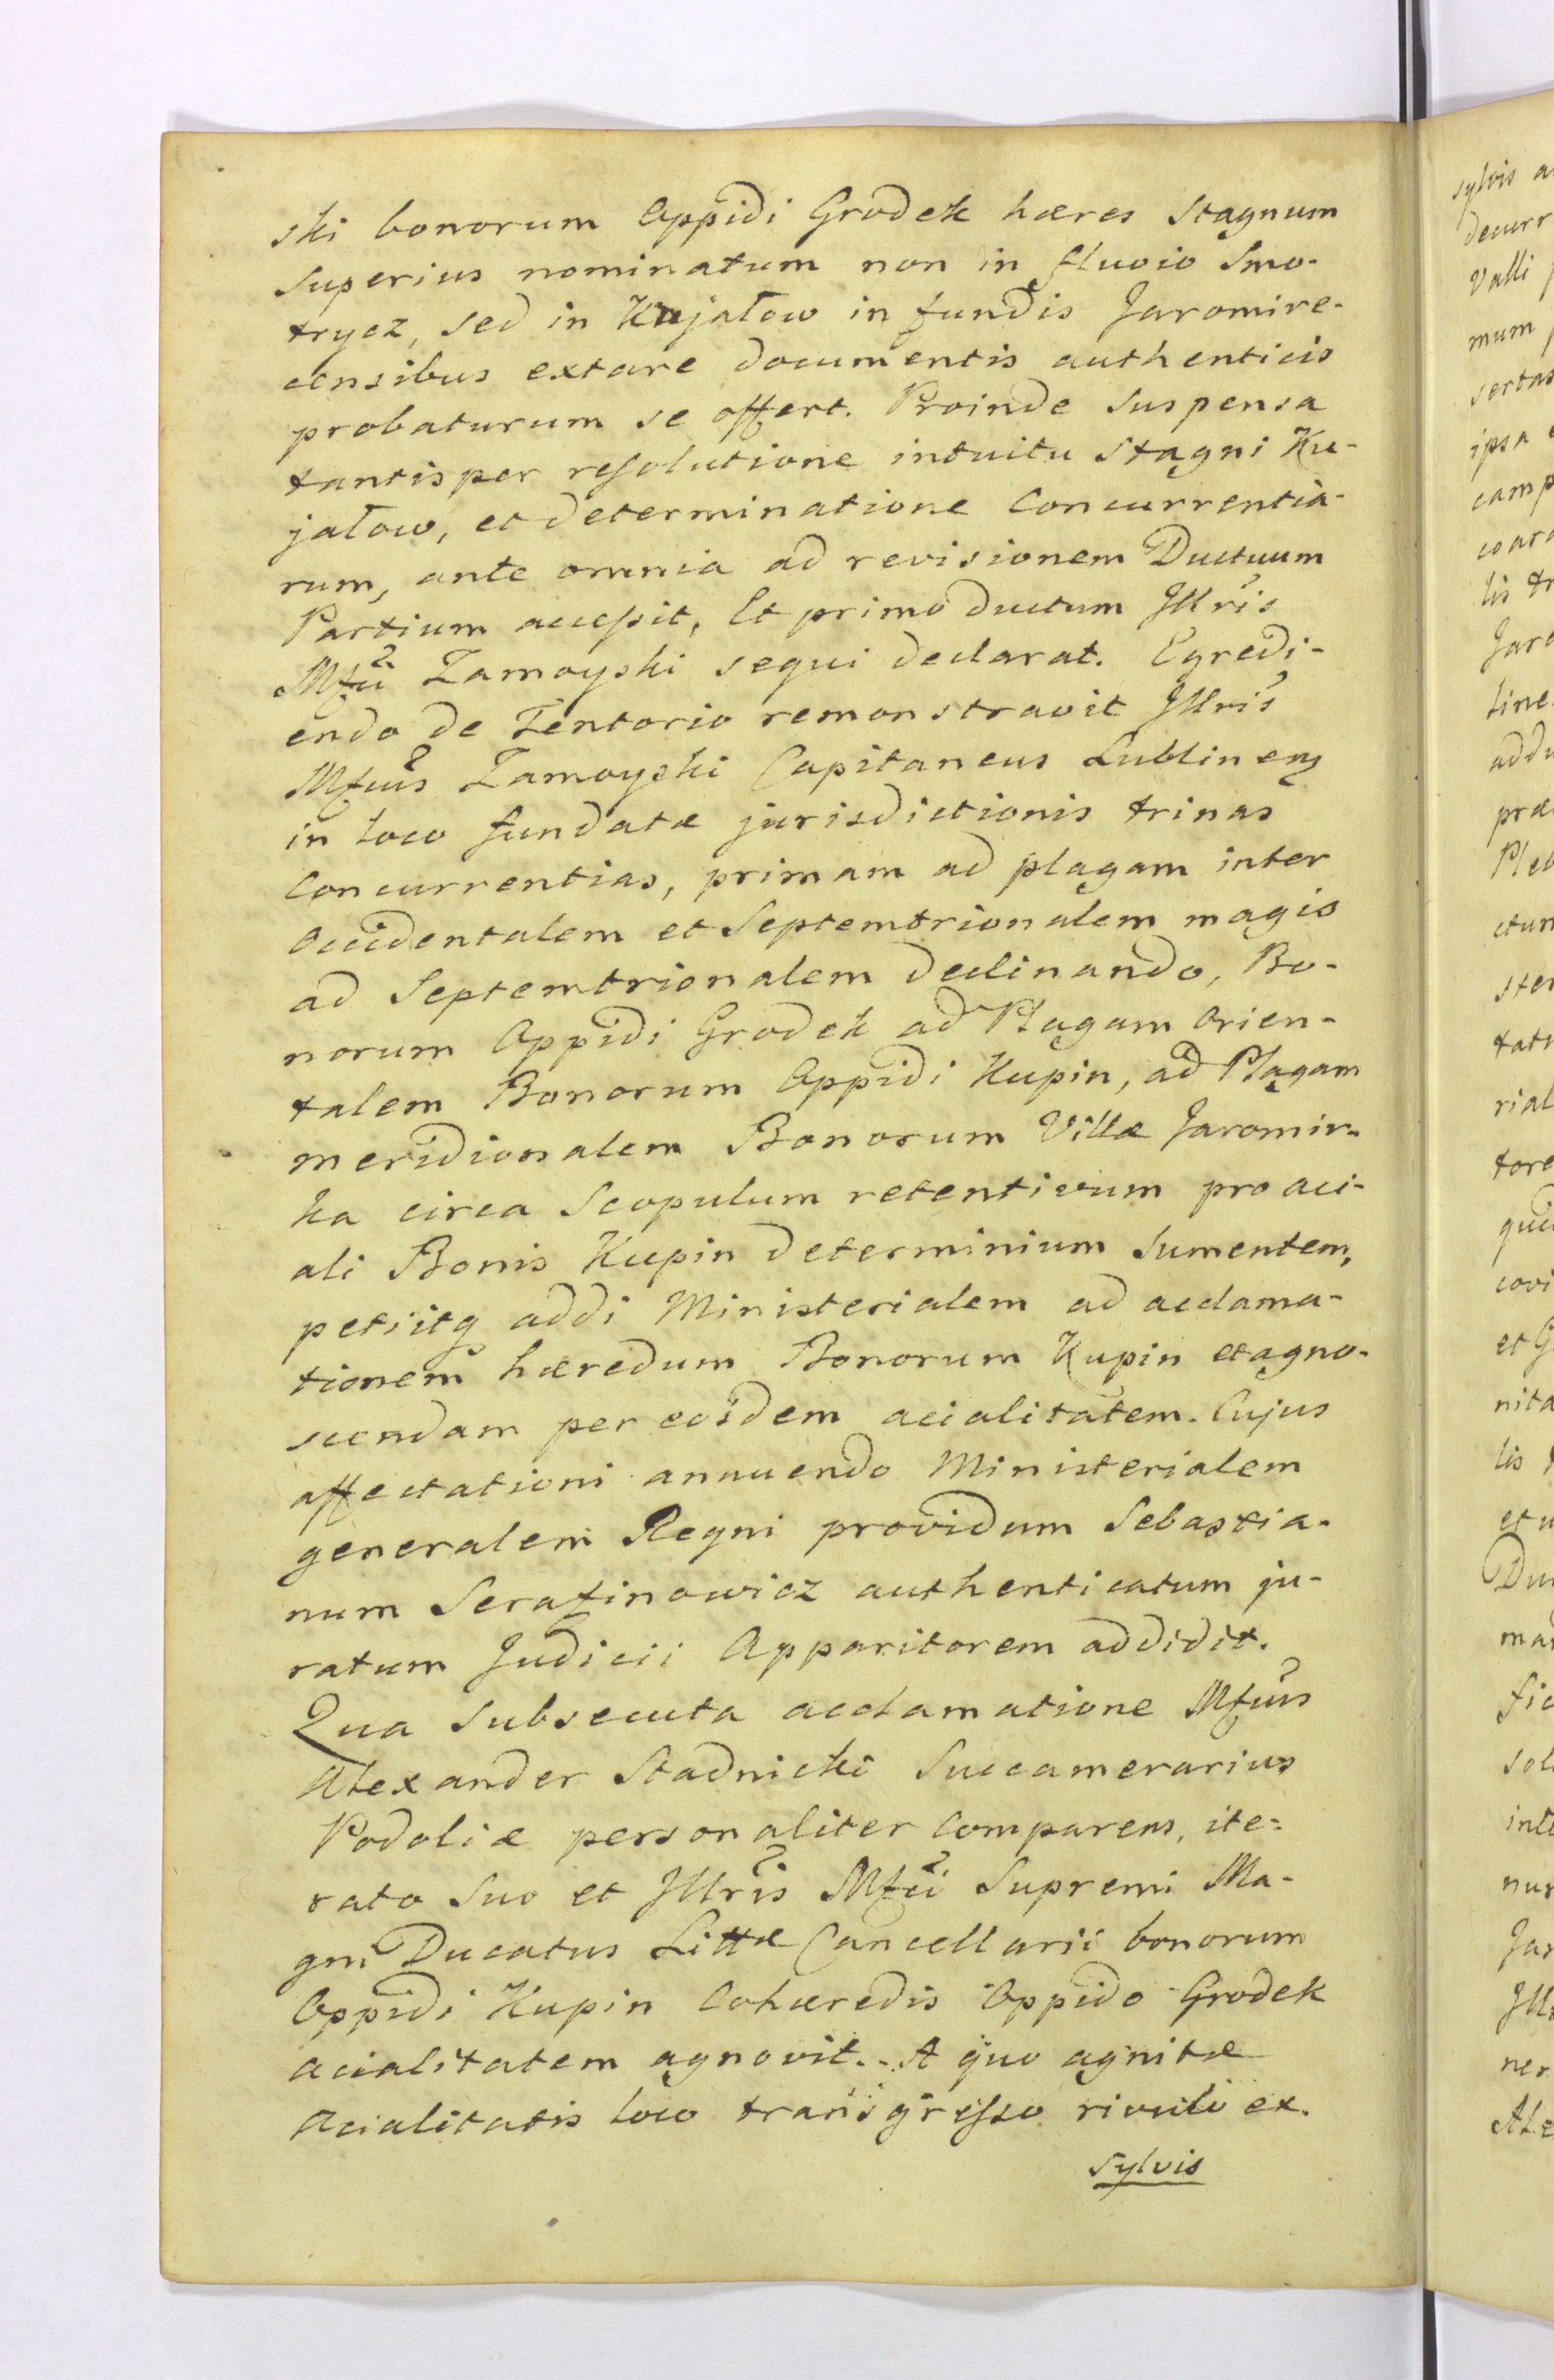 ski bonorum Oppidi Grodek hæres Stagnum
Superius nominatum non in fluvio Smo-
trycz, sed in Kujałow in fundis Jaromire-
censibus extare documentis authenticis
probaturum se offert. Proinde Suspensa
tantisper resolutione intuitu Stagni Ku-
jałow, et determinatione Concurrentia-
rum, ante omnia ad revisionem Ductuum
Partium accessit, Et primo ductum Illris
Mfci Zamoyski sequi declarat. Egredi-
endo de Tentorio remonstravit Illris
Mfcus Zamoyski Capitaneus Lublinens
in loco fundatæ jurisdictionis trinas
Concurrentias, primam ad plagam inter
Occidentalem et Septemtrionalem magis
ad Septemtrionalem declinando, Bo-
norum Oppidi Grodek ad Plagam Orien-
talem Bonorum Oppidi Kupin, ad Plagam
meridionalem Bonorum Villæ Jaromir-
ka circa Scopulum retentivum pro aci-
ali Bonis Kupin determinium Sumentem,
petiitq addi Ministerialem ad acclama-
tionem hæredum Bonorum Kupin et agno-
scendam per eosdem acialitatem. Cujus
affectationi annuendo Ministerialem
generalem Regni providum Sebastia-
num Serafinowicz authenticatum ju-
ratum Judicii Apparitorem addidit.
Qua Subsecuta acclamatione Mfcus
Alexander Stadnicki Succamerarius
Podoliæ personaliter Comparens, ite-
rato Suo et Illris Mfci Supremi Ma-
gni Ducatus Littæ Cancellarii bonorum
Oppidi Kupin Cohæredis Oppido Grodek
acialitatem agnovit. A quo agnitæ
Acialitatis loco transgresso rivulo ex.
Sylvis
sylvis
decurr
Valli
mum
sertas
ipsa
camp